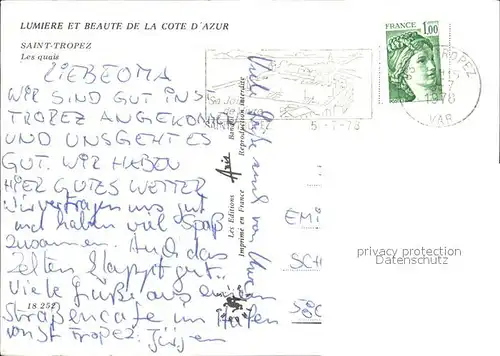 LUMIERE ET BEAUTE DE LA COTE D'AZUR
SAINT-TROPEZ
Les quais
FRANCE
1,00
TROPEZ
1978
VAR
5-7-78
LIEBE OMA
WIR SIND GUT IN ST
TROPEZ ANGEKOMMEN
UND UNS GEHT ES
GUT. WIR HABEN
HIER GUTES WETTER
Wir vertragen uns gut
und haben viel Spaß
zusammen. Auch das
Zelten klappt gut.
Viele Grüße aus einem
Straßencafe im Hafen
von St Tropez. Jürgen
18 252
Viele Grüße auch von
Les Editions Aris
Imprimé en France
Reproduction interdite
EMI
SCH
580
privacy protection
Datenschutz